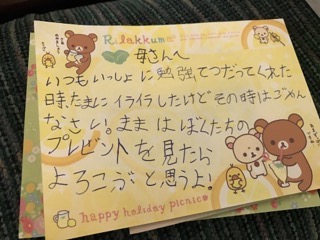 Rilakkuma
母さんへ
いつもいっしょに勉強てつだってくれた
時、たまにイライラしたけどその時はごめん
なさい。ままはぼくたちの
プレゼントを見たら
よろこぶと思うよ!
happy holiday picnic